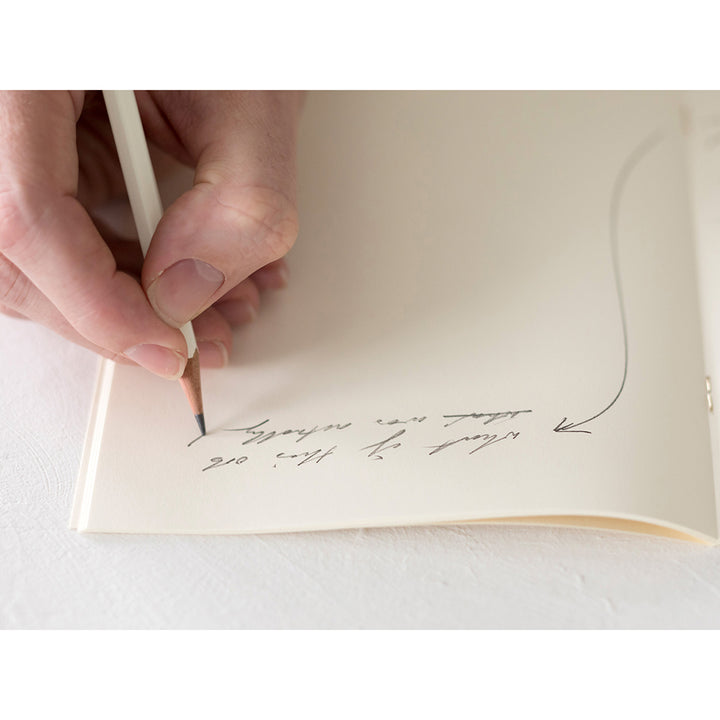 what if this one
what was actually